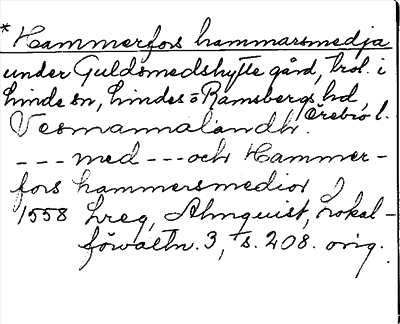 * Hammerfors hammarsmedja
under Guldsmedshytte gård, trol. i
Linde sn, Lindes o Ramsbergs hd,
Vesmannaland hr. Örebro l.
--- med --- och Hammer-
fors hammersmedior
1558 Lreg, Almquist, Lokal-
förvaltn. 3, s. 208. orig.